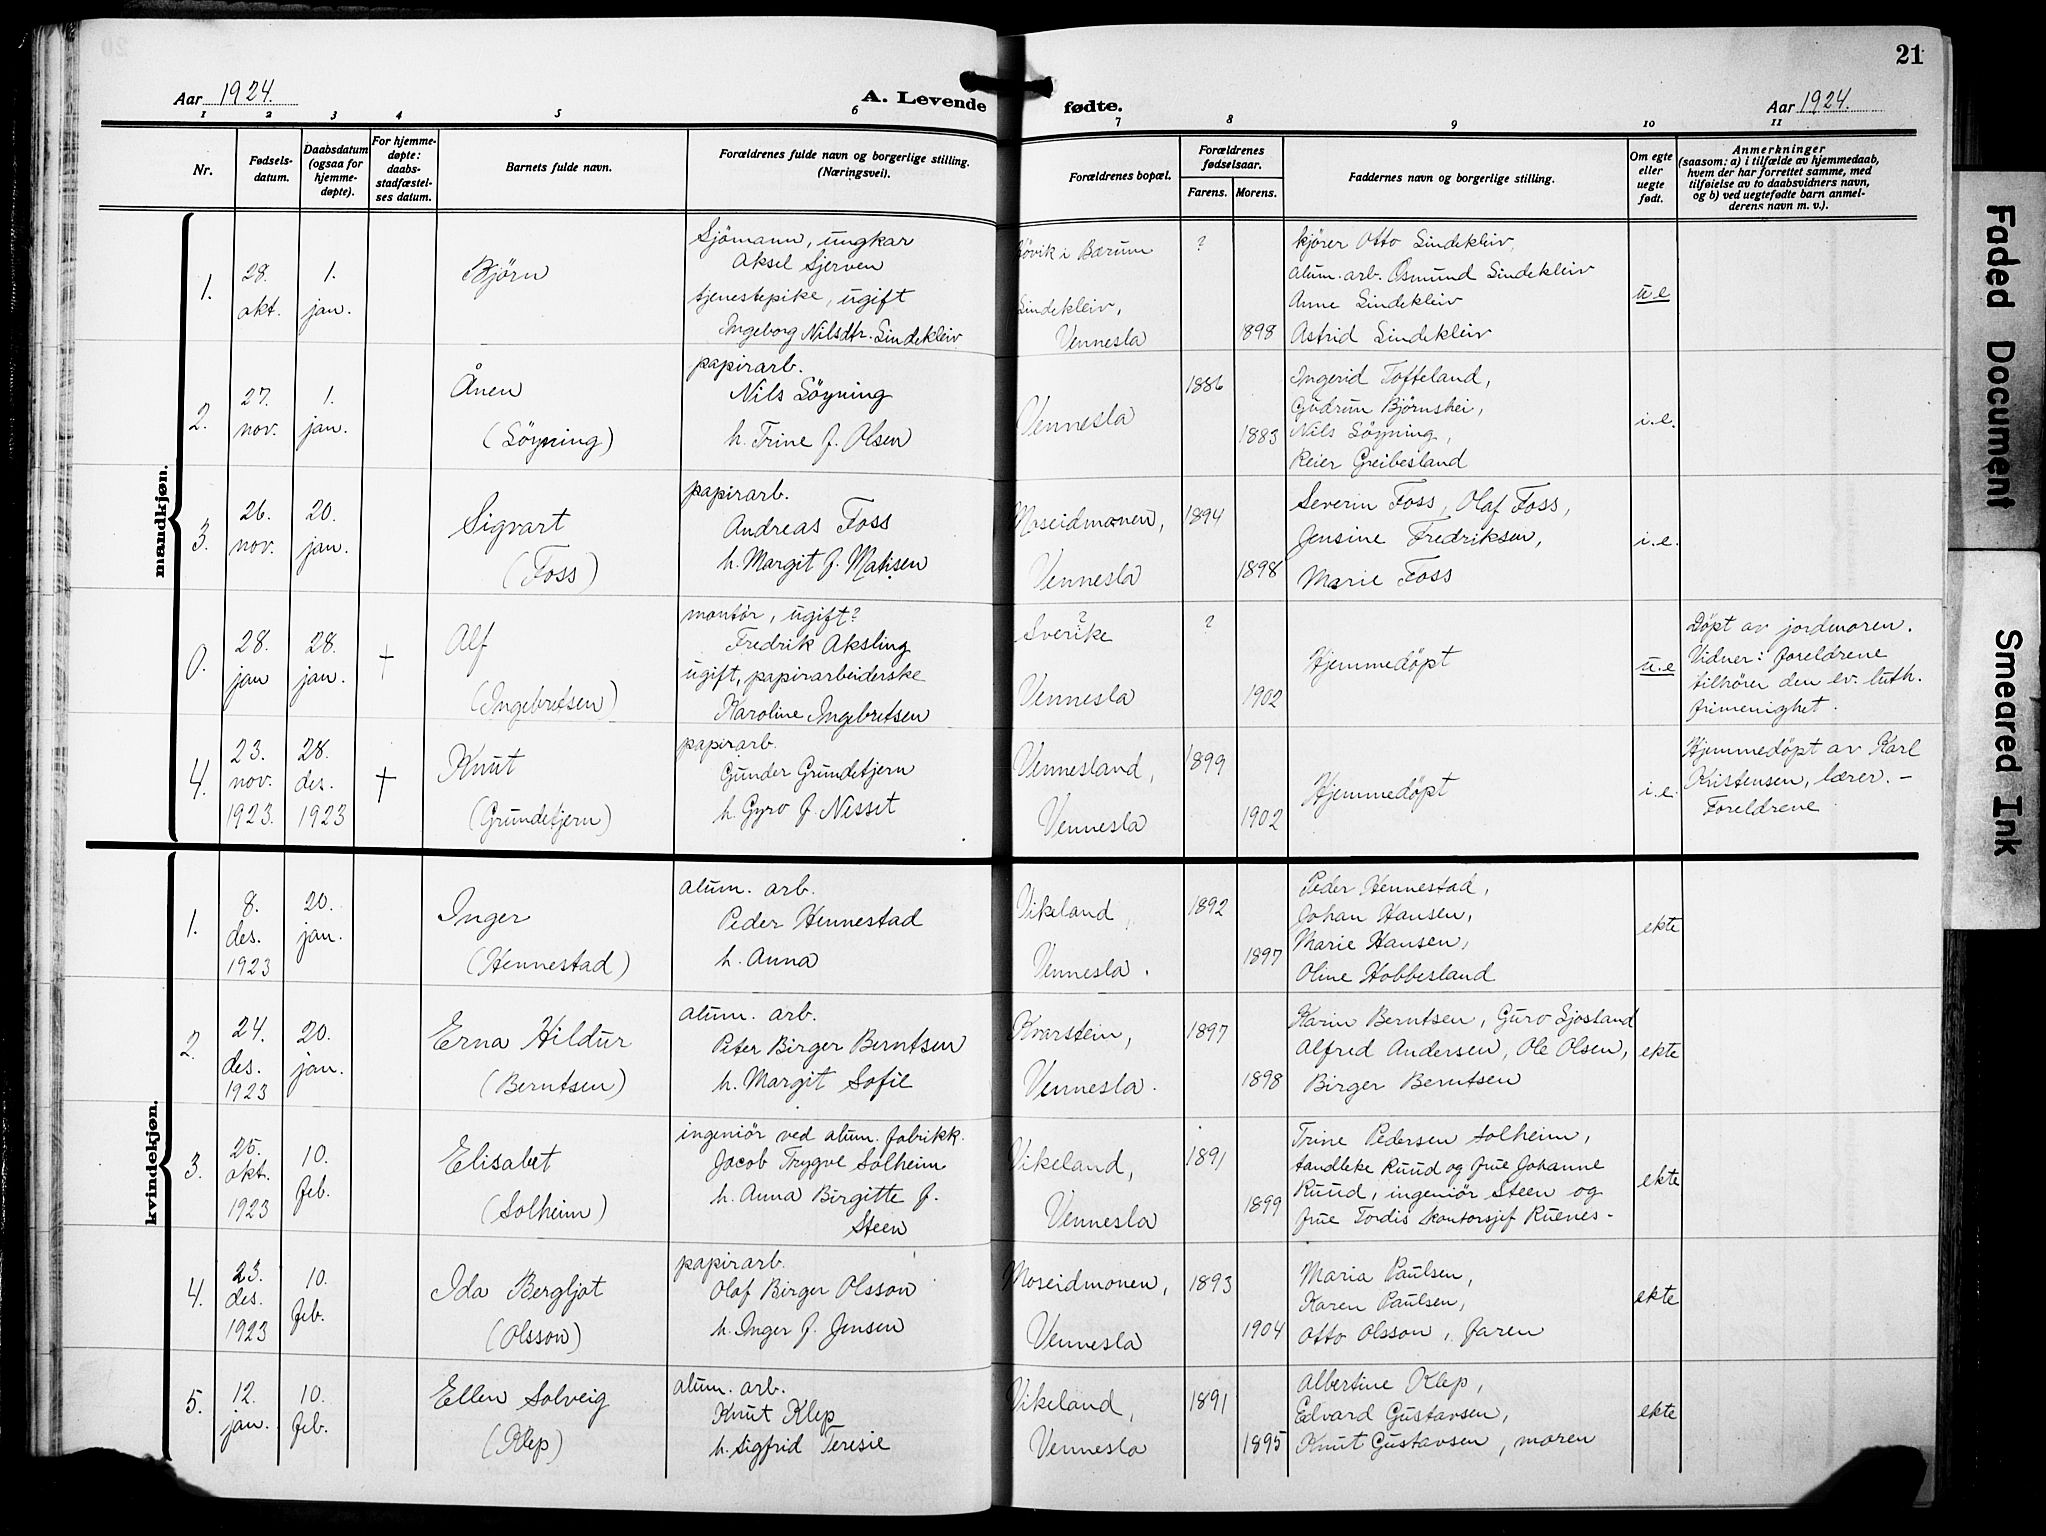 21
Aar 1924.
A. Levende fødte.
Aar 1924.
1 2 3 4 5 6 7 8 9 10 11
Nr.
Fødsels-
datum.
Daabsdatum
(ogsaa for
hjemme-
døpte).
For hjemme-
døpte:
daabs-
stadfæstel-
ses datum.
Barnets fulde navn.
Forældrenes fulde navn og borgerlige stilling.
(Næringsvei).
Forældrenes bopæl.
Forældrenes
fødselsaar.
Farens. Morens.
Faddernes navn og borgerlige stilling.
Om egte
eller
uegte
født.
Anmerkninger
(saasom: a) i tilfælde av hjemmedaab,
hvem der har forrettet samme, med
tilføielse av to daabsvidners navn,
og b) ved uegtefødte barn anmel-
derens navn m. v.).
mandkjøn.
1.
28.
okt.
1.
jan.
Bjørn
Sjömann, ungkar
Aksel Sjerven
tjenestepike, ugift
Ingeborg Nilsdtr. Lindekleiv
Høvik i Bærum
Lindekleiv,
Vennesla
?
1898
kjører Otto Lindekleiv,
alum. arb. Osmund Lindekleiv
Anne Lindekleiv
Astrid Lindekleiv
u.e
2.
27.
nov.
1.
jan.
Ånen
(Löyning)
papirarb.
Nils Löyning
h. Trine f. Olsen
Vennesla
1886
1883
Ingerid Tofteland,
Gudrun Bjørnshei,
Nils Löyning,
Reier Greibesland
i.e.
3.
26.
nov.
20.
jan.
Sigvart
(Foss)
papirarb.
Andreas Foss
h. Margit f. Matisen
Moseidmonen,
Vennesla
1894
1898
Severin Foss, Olaf Foss,
Jensine Fredriksen,
Marie Foss
i.e.
0.
28.
jan
28.
jan.
+
Alf
(Ingebretsen)
montør, ugift?
Fredrik Aksling
ugift, papirarbeiderske
Karoline Ingebretsen
?
Sverike
Vennesla
?
1902
Hjemmedøpt
u.e
Døpt av jordmoren.
Vidner: foreldrene
tilhører den ev. luth.
frimenighet.
4.
23.
nov.
1923.
28.
des.
1923
+
Knut
(Grundetjern)
papirarb.
Gunder Grundetjern
h. Gyro f. Nesset
Vennesland,
Vennesla
1899
1902
Hjemmedøpt
i.e.
Hjemmedøpt av Karl
Kristensen, lærer. –
Foreldrene
kvindekjøn.
1.
8.
des.
1923
20.
jan.
Inger
(Hennestad)
alum. arb.
Peder Hennestad
h. Anna
Vikeland,
Vennesla.
1892
1897
Peder Hennestad,
Johan Hansen,
Marie Hansen,
Oline Hobbesland
ekte
2.
24.
des.
1923
20.
jan.
Erna Hildur
(Berntsen)
alum. arb.
Peter Birger Berntsen
h. Margit Sofie
Kvarstein,
Vennesla.
1897
1898
Karin Berntsen, Guro Sjosland
Alfred Andersen, Ole Olsen,
Birger Berntsen
ekte
3.
25.
okt.
1923
10.
feb.
Elisabet
(Solheim)
ingeniör ved alum. fabrikk.
Jacob Trygve Solheim
h. Anna Birgitte f.
Steen
Vikeland,
Vennesla
1891
1899
Trine Pedersen Solheim,
tandleke Ruud og frue Johanne
Ruud, ingeniör Steen og
frue Tordis kontorsjef Ruenes-
ekte
4.
23.
des.
1923
10.
feb.
Ida Bergljot
(Olsson)
papirarb.
Olof Birger Olsson
h. Inger f. Jensen
Moseidmonen,
Vennesla
1893
1904
Maria Paulsen,
Karen Paulsen,
Otto Olsson, faren
ekte
5.
12.
jan.
10.
feb.
Ellen Solveig
(Klep)
alum. arb.
Knut Klep
h. Sigfrid Teresie
Vikeland,
Vennesla
1891
1895
Albertine Klep,
Edvard Gustavsen,
Knut Gustavsen, moren
ekte
Faded Document
Smeared Ink